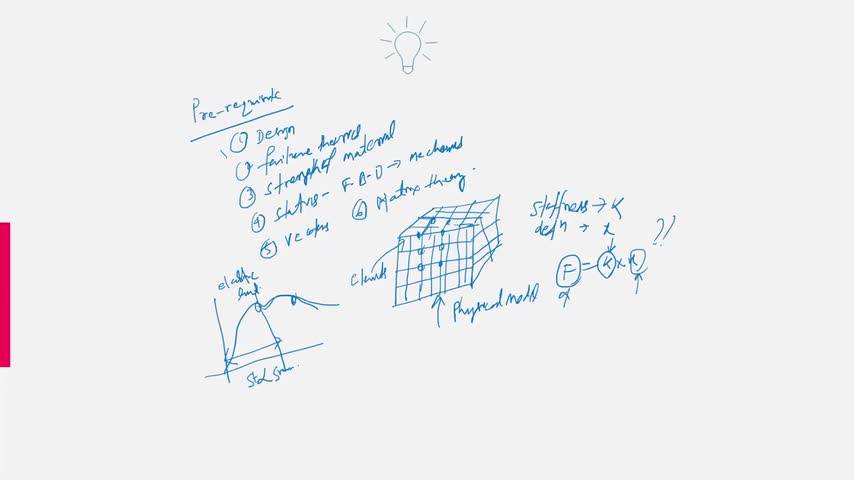 Pre-requisite
① Design
② failure theories
③ Strength of material
④ Statics - F.B.D → mechanics
⑤ Vectors
⑥ Matrix theory.
Stiffness → K
→ x
F = K x x ??
elastic
limit
Physical Model